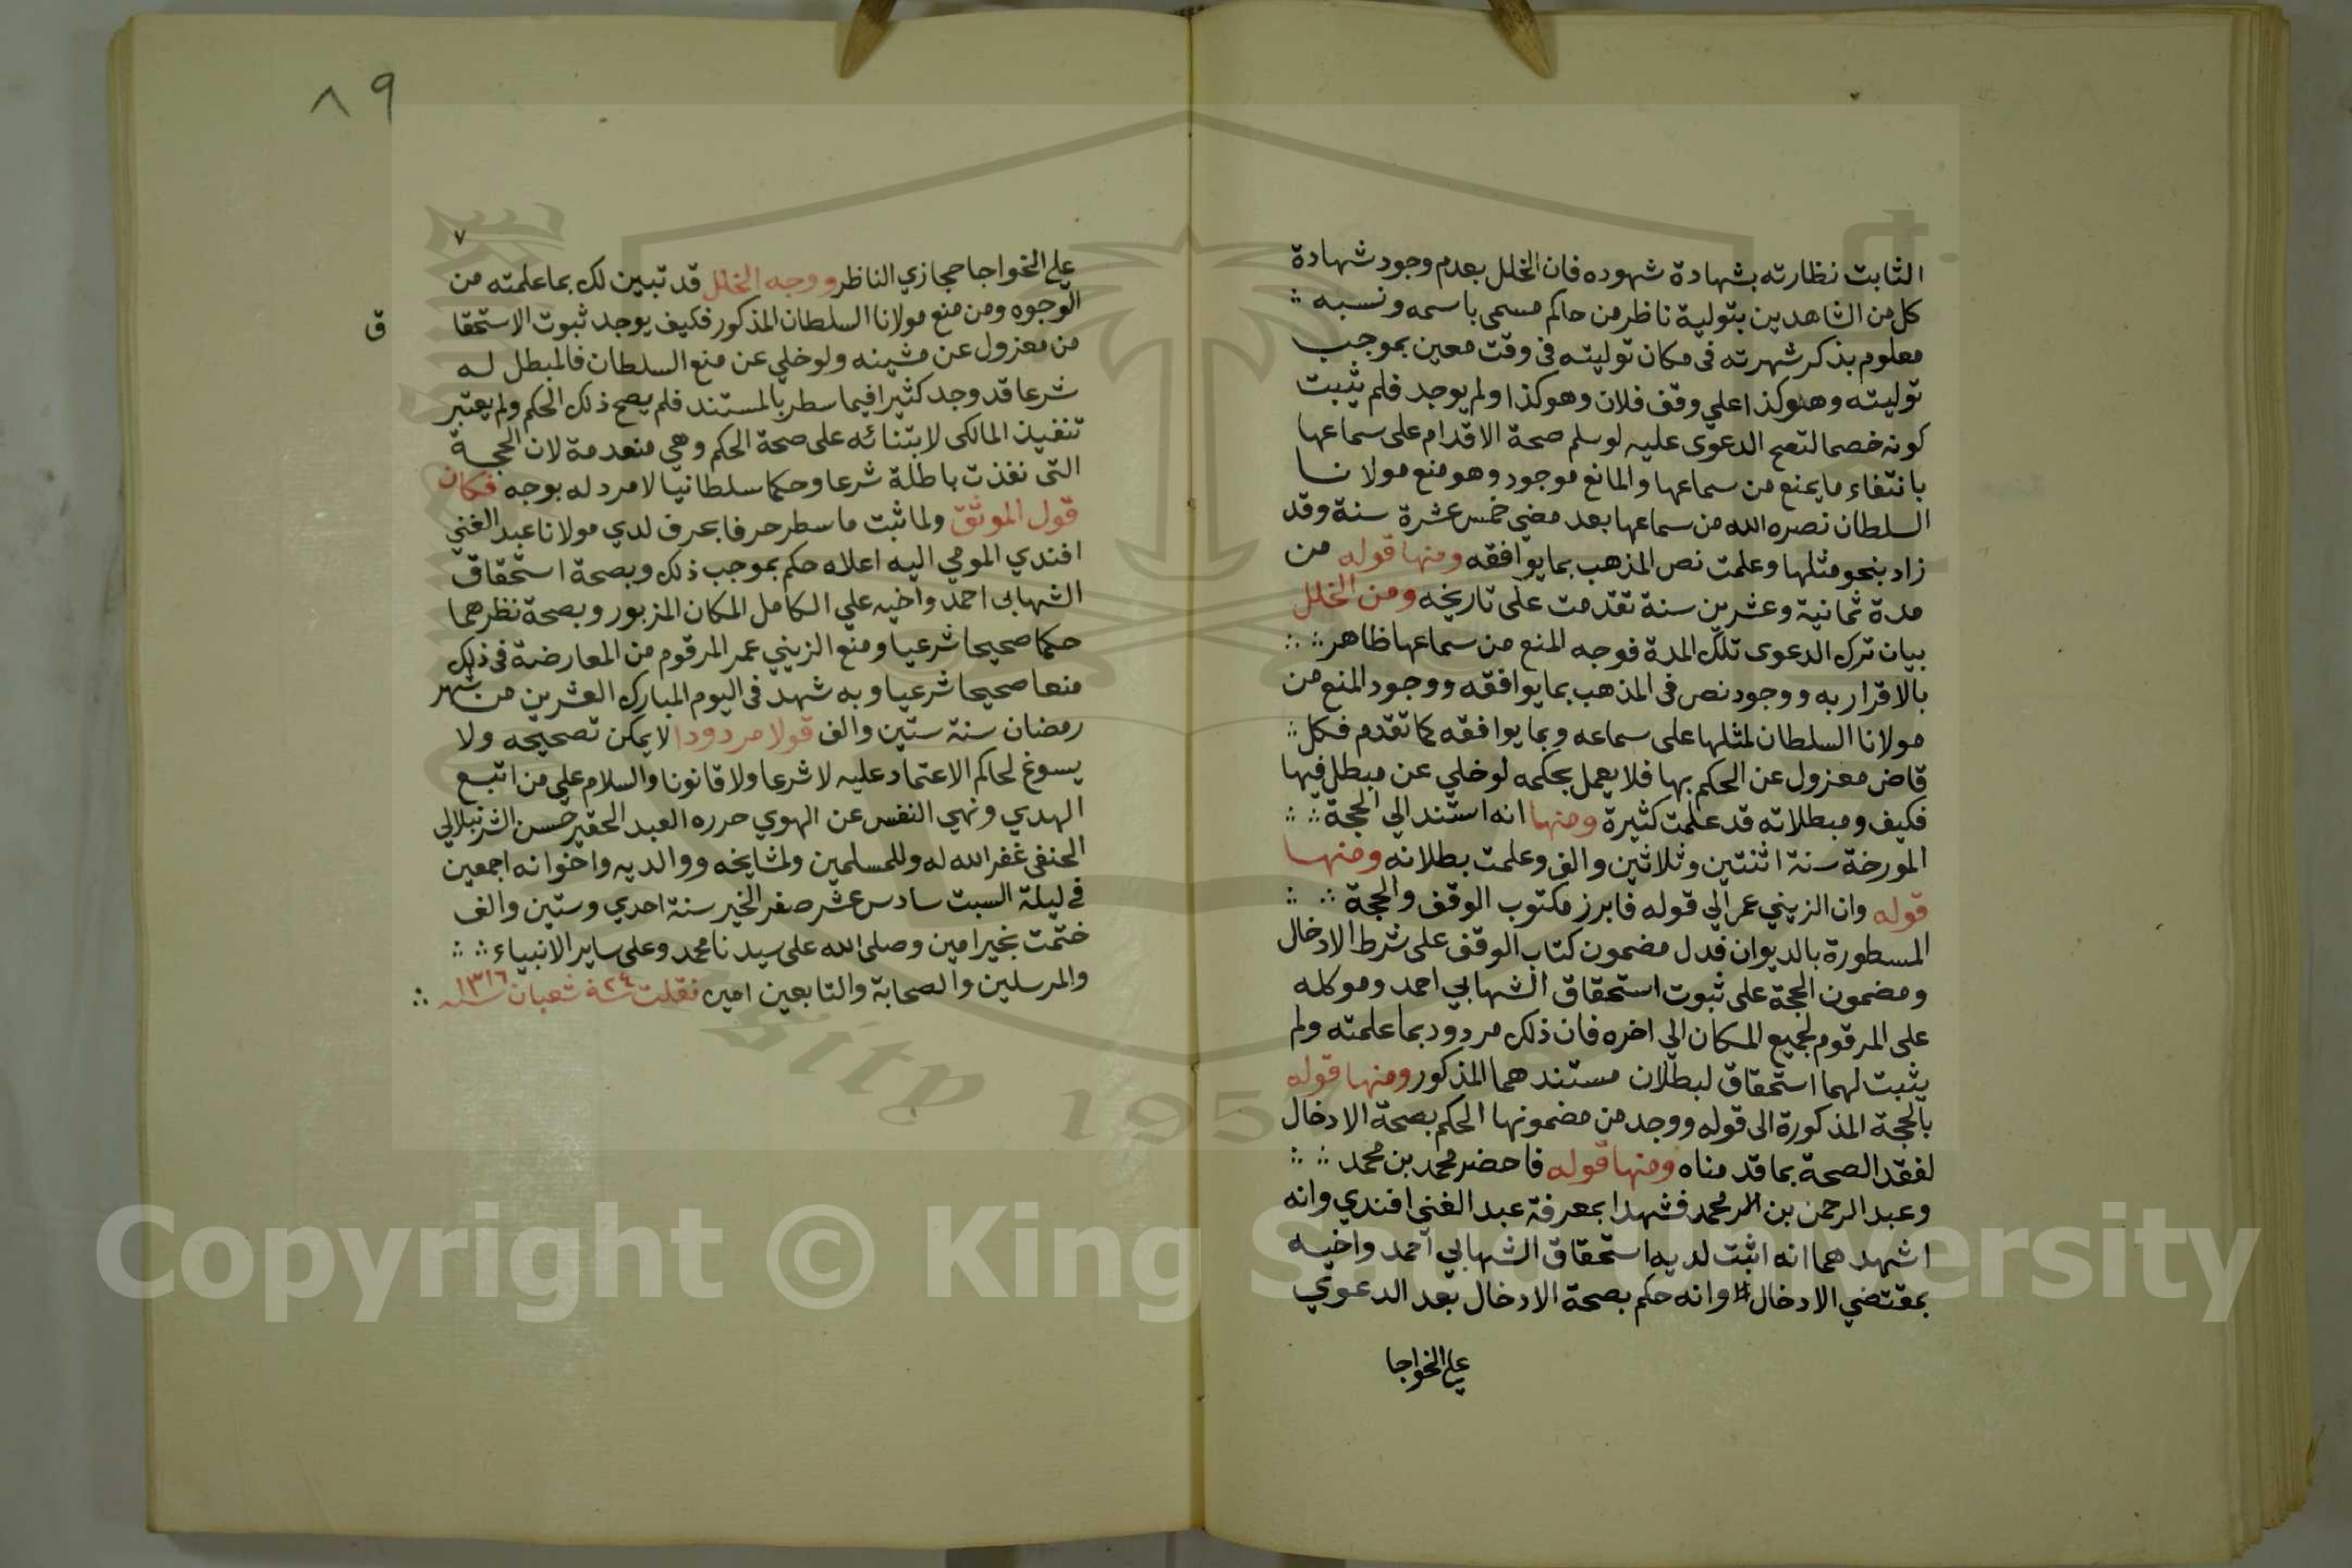 الثابت نظارته بشهادة شهوده فان الخلل بعدم وجود شهادة
كل من الشاهدين بتولية ناظر من حاكم مسمى باسمه ونسبه
معلوم بذكر شهرته فى مكان توليته فى وقت معين بموجب
توليته وهو كذا على وقف فلان وهو كذا ولم يوجد فلم يثبت
كونه خصما لتصح الدعوى عليه لو سلم صحة الاقدام على سماعها
بانتفاء ما يمنع من سماعها والمانع موجود وهو منع مولانا
السلطان نصره الله من سماعها بعد مضى خمس عشرة سنة وقد
زاد بنحو مثلها وعلمت نص المذهب بما يوافقه ومنها قوله من
مدة ثمانية وعشرين سنة تقدمت على تاريخه ومن الخلل
بيان ترك الدعوى تلك المدة فوجه المنع من سماعها ظاهر
بالاقرار به ووجود نص فى المذهب بما يوافقه ووجود المنع من
مولانا السلطان لمثلها على سماعه وبما يوافقه كما تقدم فكل
قاض معزول عن الحكم بها فلا يعمل بحكمه لو خلي عن مبطل فيها
فكيف ومبطلاته قد علمت كثيرة ومنها انه استند الي الحجة
المورخة سنة اثنتين وثلاثين والف وعلمت بطلانه ومنها
قوله وان الزيني عمر الي قوله فابرز مكتوب الوقف والحجة
المسطورة بالديوان فدل مضمون كتاب الوقف على شرط الادخال
ومضمون الحجة على ثبوت استحقاق الشهابي احمد وموكله
على المرقوم لجميع المكان الى اخره فان ذلك مردود بما علمته ولم
يثبت لهما استحقاق لبطلان مستندهما المذكور ومنها قوله
بالحجة المذكورة الى قوله ووجد من مضمونها الحكم بصحة الادخال
لفقد الصحة بما قدمناه ومنها قوله فاحضر محمد بن محمد
وعبد الرحمن بن محمد فشهدا بمعرفة عبد الغنى افندي وانه
اشهدهما انه اثبت لديه استحقاق الشهابي احمد واخيه
بمقتضي الادخال وانه حكم بصحة الادخال بعد الدعوي
علي الخواجا
٨٩
٧
علي الخواجا حجازي الناظر ووجه الخلل قد تبين لك بما علمته من
الوجوه ومن منع مولانا السلطان المذكور فكيف يوجد ثبوت الاستحقا ق
من معزول عن مشينه ولو خلي عن منع السلطان فالمبطل له
شرعا قد وجد كثيرا فيما سطر بالمستند فلم يصح ذلك الحكم ولم يعتبر
تنفيذ المالكى لابتنائه على صحة الحكم وهي منعدمة لان الحجة
التى نفذت باطلة شرعا وحكما سلطانيا لا مرد له بوجه فكان
قول الموثق ولما ثبت ما سطر حرفا بحرف لدي مولانا عبد الغني
افندي المومي اليه اعلاه حكم بموجب ذلك وبصحة استحقاق
الشهابى احمد واخيه علي الكامل المكان المزبور وبصحة نظرهما
حكما صحيحا شرعيا ومنع الزيني عمر المرقوم من المعارضة فى ذلك
منعا صحيحا شرعيا وبه شهد فى اليوم المبارك العشرين من شهر
رمضان سنة ستين والف قولا مردودا لا يمكن تصحيحه ولا
يسوغ لحاكم الاعتماد عليه لا شرعا ولا قانونا والسلام علي من اتبع
الهدي ونهي النفس عن الهوي حرره العبد الحقير حسن الشرنبلالي
الحنفى غفر الله له وللمسلمين ولمشايخه ووالديه واخوانه اجمعين
في ليلة السبت سادس عشر صفر الخير سنة احدي وستين والف
ختمت بخير امين وصلى الله على سيدنا محمد وعلى ساير الانبياء
والمرسلين والصحابة والتابعين امين نقلت ٢٤ شعبان سنة ١٣١٦
Copyright © King Saud University
1957